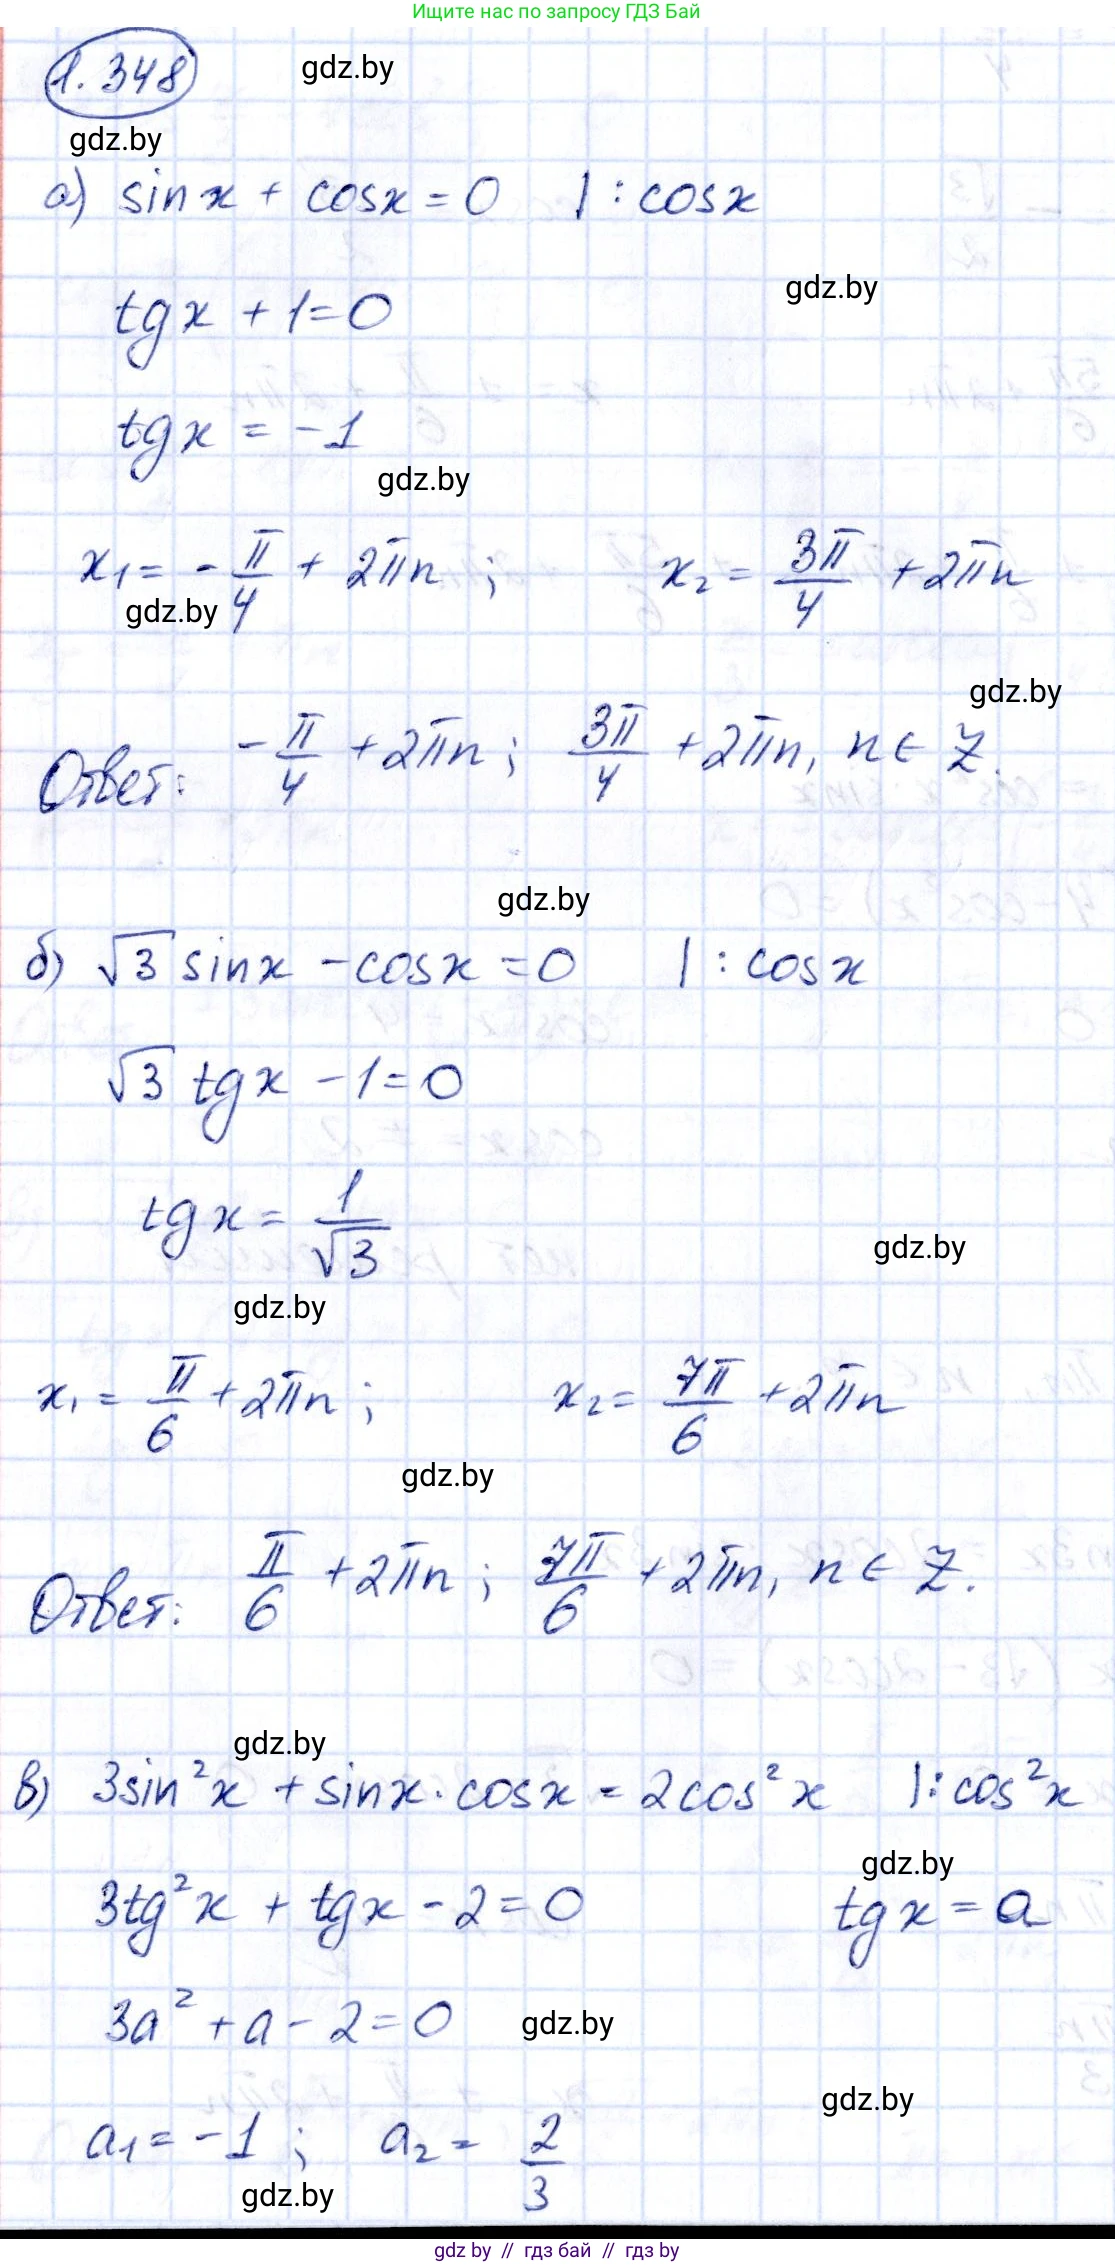 Ищите нас по запросу ГДЗ Бай
1.348
gdz.by
gdz.by
а) sinx + cosx = 0 | : cosx
gdz.by
tgx + 1 = 0
tgx = -1
gdz.by
x₁ = -π/4 + 2πn ; x₂ = 3π/4 + 2πn
gdz.by
gdz.by
Ответ: -π/4 + 2πn ; 3π/4 + 2πn, n ∈ Z.
gdz.by
б) √3 sinx - cosx = 0 | : cosx
√3 tgx - 1 = 0
tgx = 1/√3
gdz.by
gdz.by
x₁ = π/6 + 2πn ; x₂ = 7π/6 + 2πn
gdz.by
Ответ: π/6 + 2πn ; 7π/6 + 2πn, n ∈ Z.
gdz.by
в) 3sin²x + sinx · cosx = 2cos²x | : cos²x
gdz.by
3tg²x + tgx - 2 = 0 tgx = a
3a² + a - 2 = 0 gdz.by
gdz.by
a₁ = -1 ; a₂ = 2/3
gdz.by
gdz by // гдз бай // гдз by